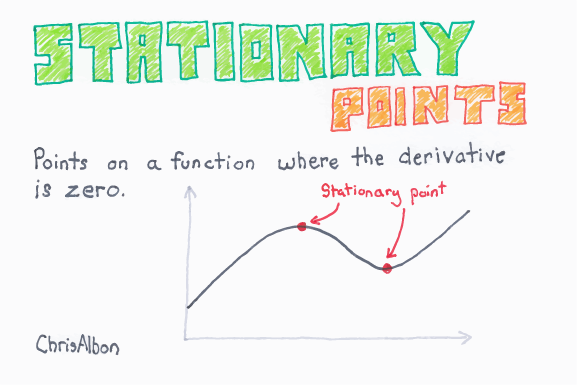 STATIONARY
POINTS
Points on a function where the derivative
is zero.
Stationary point
ChrisAlbon